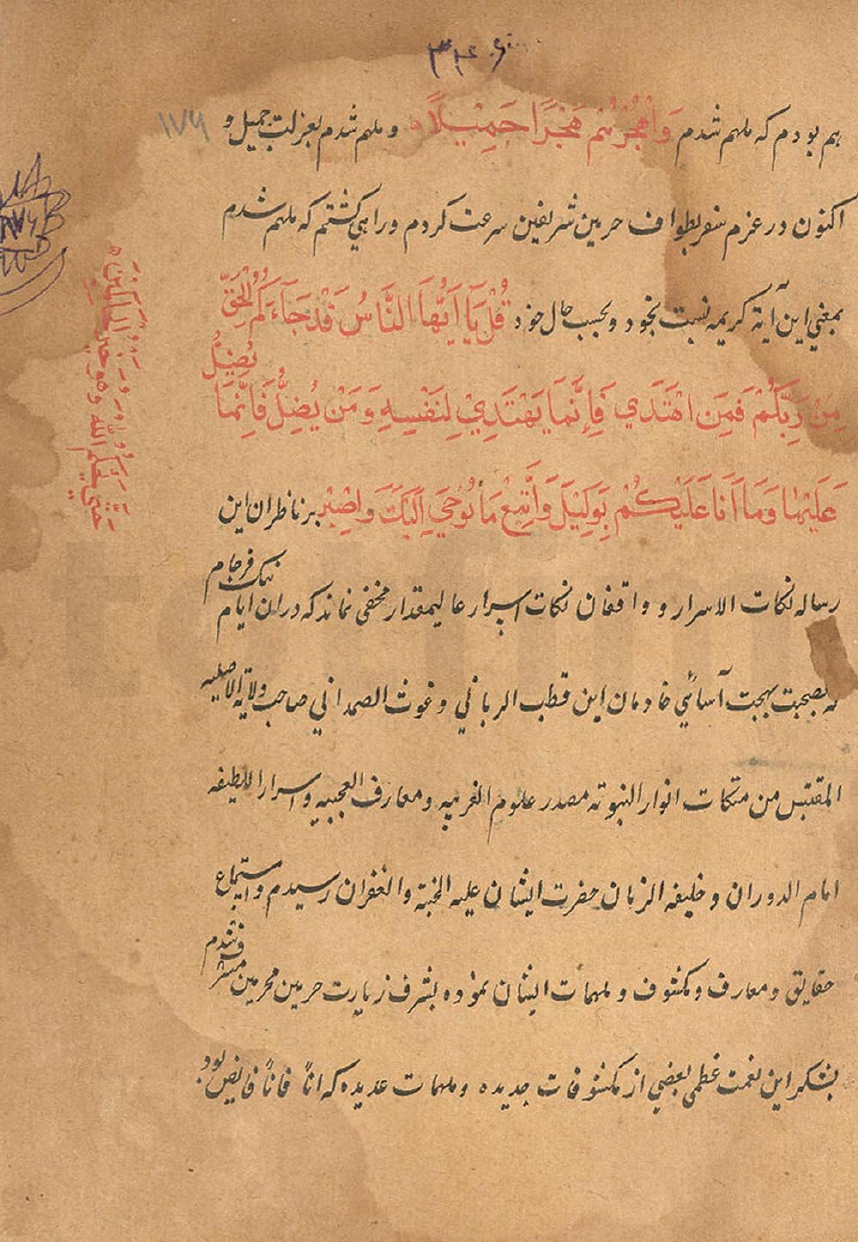 ۱۷۶
هم بودم که ملهم شدم وَاهْجُرْهُمْ هَجْرًا جَمِيْلًا و ملهم شدم بعزلت جمیل و
اکنون در عزم سفر بطواف حرمین شریفین سرعت کردم و راهی گشتم که ملهم شدم
بمعنی این آیة کریمه نسبت بخود و بحسب حال خود قُلْ يَا اَيُّهَا النَّاسُ قَدْ جَاءَكُمُ الْحَقُّ
مِنْ رَبِّكُمْ فَمَنِ اهْتَدَي فَاِنَّمَا يَهْتَدِيْ لِنَفْسِهِ وَمَنْ يُضِلُّ فَاِنَّمَا يُضِلُّ
عَلَيْهَا وَمَا اَنَا عَلَيْكُمْ بِوَكِيْلٍ وَاتَّبِعْ مَا يُوْحٰي اِلَيْكَ وَاصْبِرْ بر ناظران این
رساله نکات الاسرار و واقفان نکات اسرار عالیمقدار مخفی نماند که دران ایام نیک فرجام
که بصحبت بهجت آسائی خادمان این قطب الربانی و غوث الصمدانی صاحب ولایة الاصلیه
المقتبس من مشکات انوار النبوته مصدر علوم الغریبه و معارف العجیبه و اسرار اللطیفه
امام الدوران و خلیفه الزمان حضرت ایشان علیه و الغفران رسیدم و استماع
حقایق و معارف و مکشوف و ملهمات ایشان نموده بشرف زیارت حرمین محرمین مشرف شدم
بشکر این نعمت عظمی بعضی از مکشوفات جدیده و ملهمات عدیده که اناً فاناً فایض بود
حَتّٰي يَحْكُمَ اللّٰه وهو خير الحاكمين